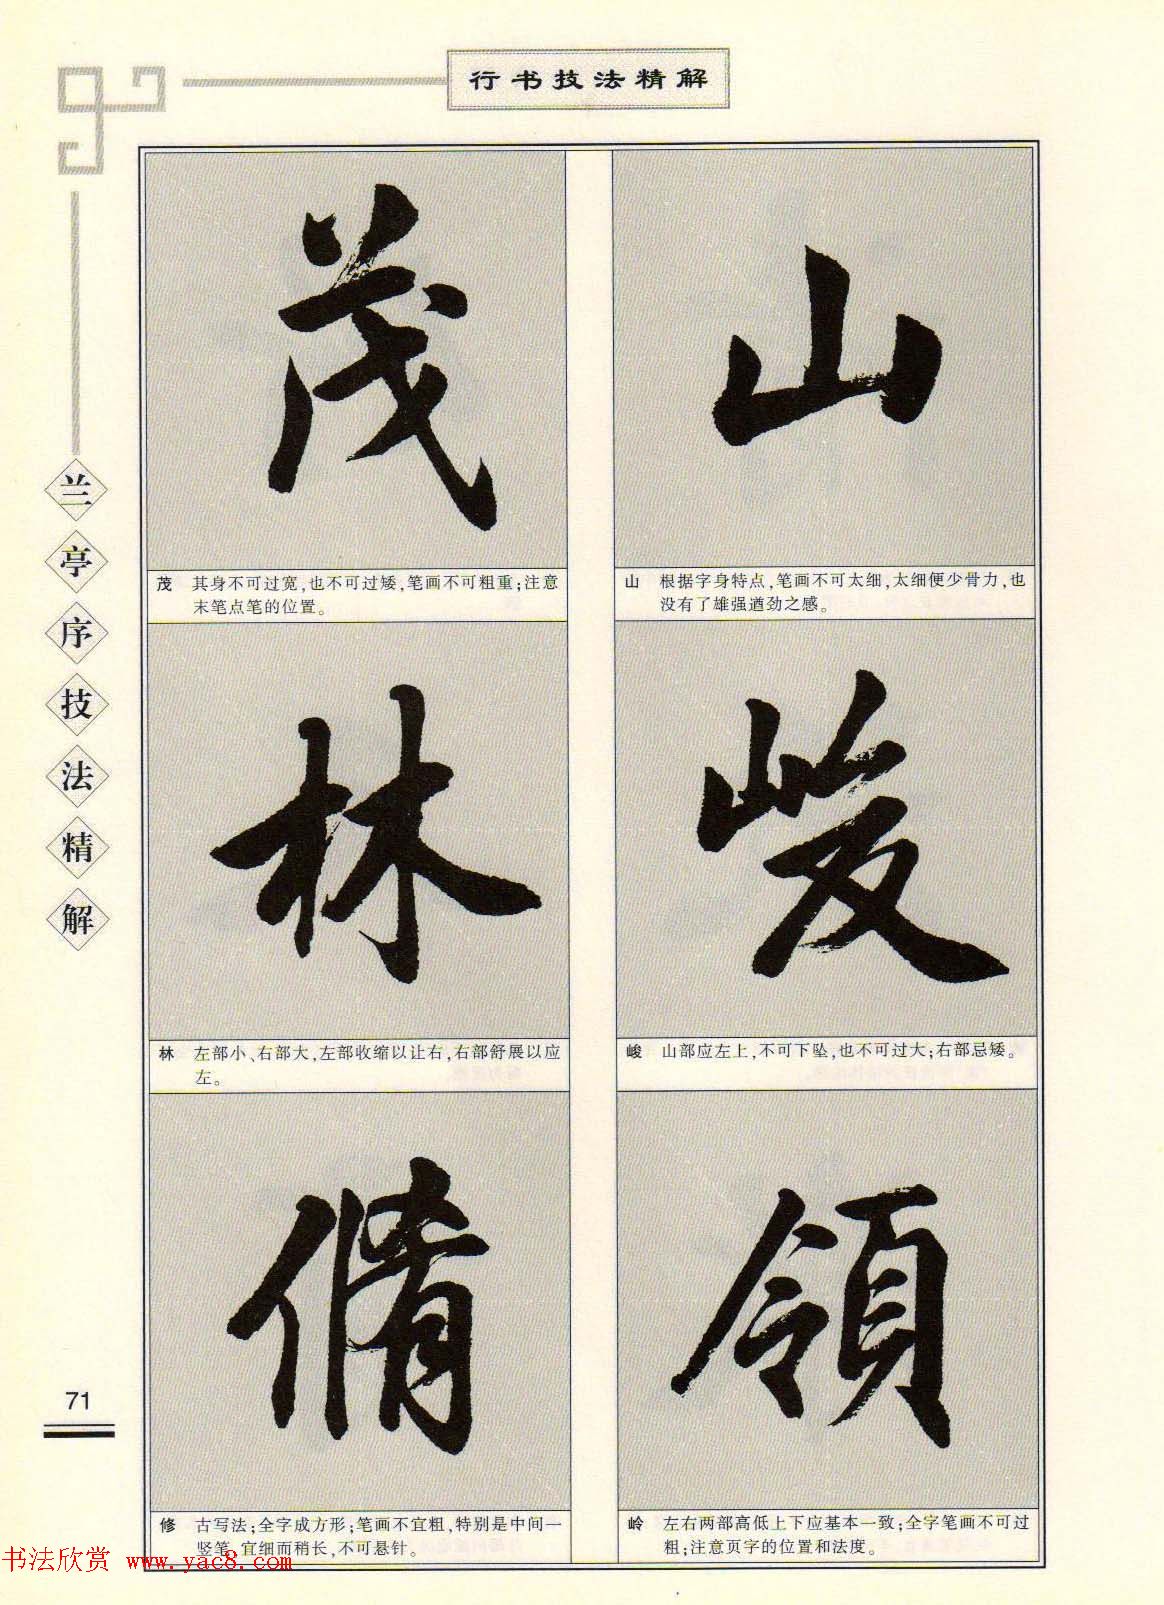 行书技法精解
兰亭序技法精解
山
山 根据字身特点,笔画不可太细,太细便少骨力,也
没有了雄强遒劲之感。
峻
峻 山部应左上,不可下坠,也不可过大;右部忌矮。
領
岭 左右两部高低上下应基本一致;全字笔画不可过
粗;注意页字的位置和法度。
茂
茂 其身不可过宽,也不可过矮,笔画不可粗重;注意
末笔点笔的位置。
林
林 左部小、右部大,左部收缩以让右,右部舒展以应
左。
脩
修 古写法;全字成方形;笔画不宜粗,特别是中间一
竖笔,宜细而稍长,不可悬针。
71
书法欣赏 www.yac8.com